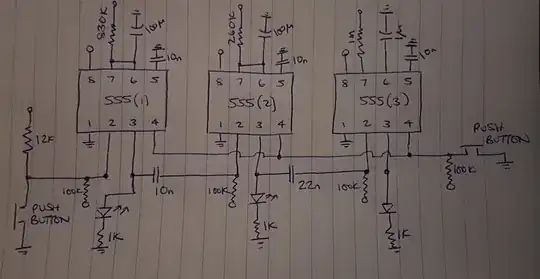 830K 100µ 10n
260K 100µ 10n
1M 10n
8 7 6 5
555(1)
1 2 3 4
8 7 6 5
555(2)
1 2 3 4
8 7 6 5
555(3)
1 2 3 4
12K
PUSH
BUTTON
100K
10n
100K
22n
100K
100K
PUSH
BUTTON
1K
1K
1K